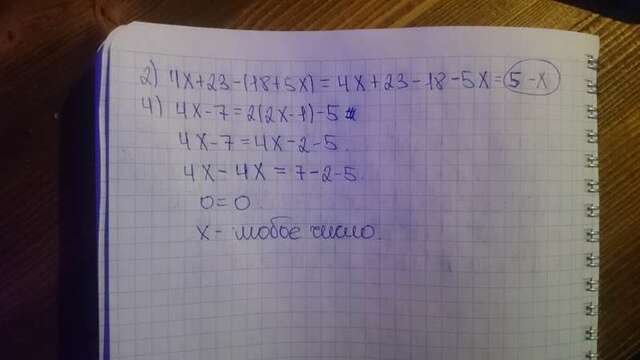 2) 4x+23-(18+5x)=4x+23-18-5x=5-x
4) 4x-7=2(2x-1)-5
4x-7=4x-2-5.
4x-4x=7-2-5.
0=0.
x- любое число.